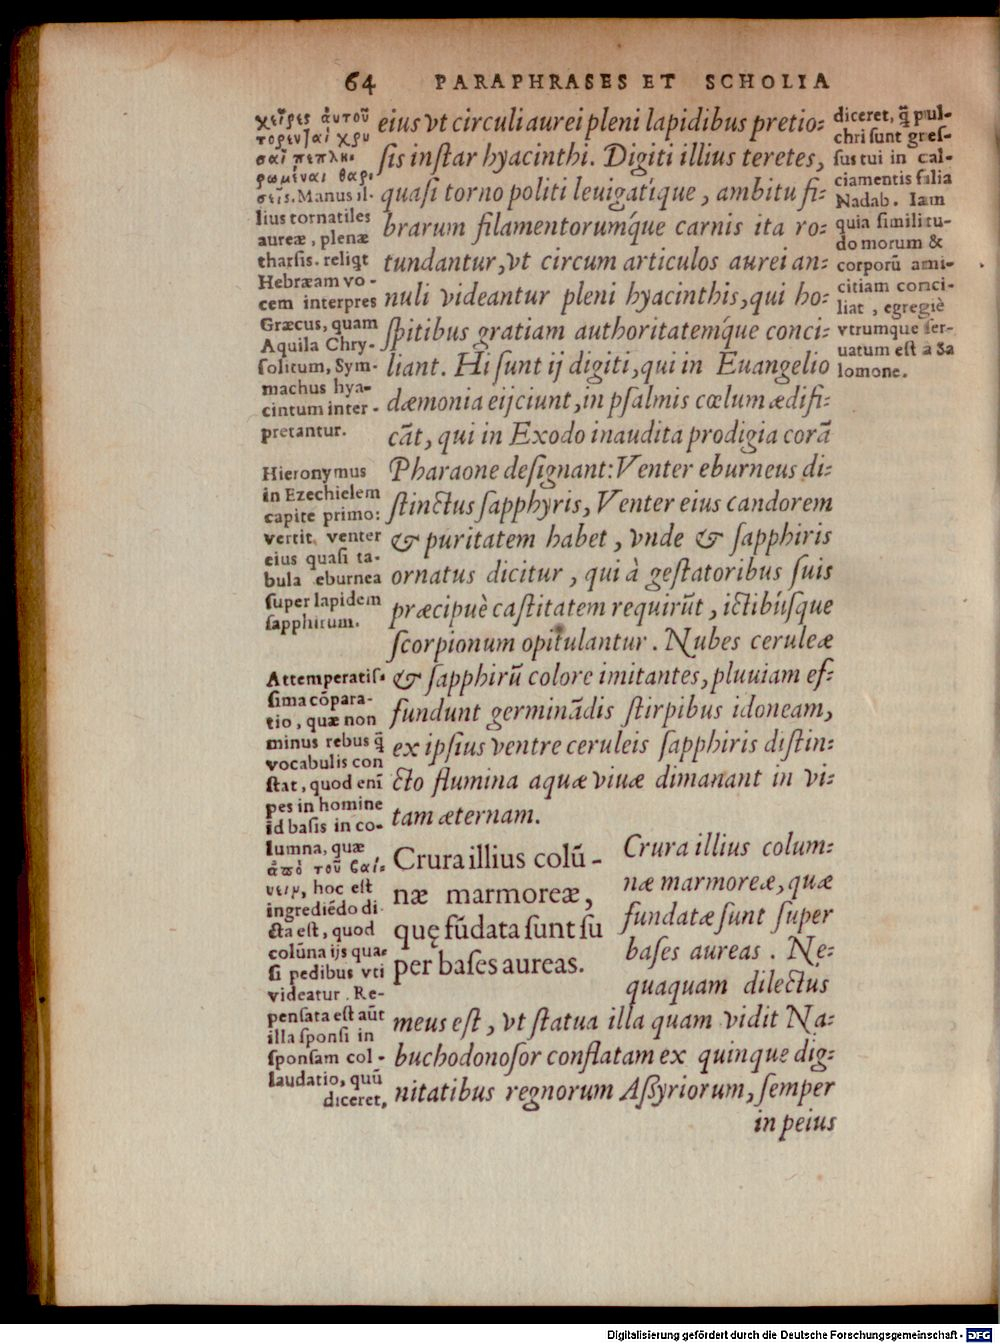 64 PARAPHRASES ET SCHOLIA
χεῖρες ἀυτοῦ
τορευταὶ χρυ
σαῖ πεπλη-
ρωμέναι θαρ-
σεῖς. Manus il-
lius tornatiles
aureæ, plenæ
tharsis. reliqt
Hebræam vo-
cem interpres
Græcus, quam
Aquila Chry-
solitum, Sym-
machus hya-
cintum inter-
pretantur.
Hieronymus
in Ezechielem
capite primo:
vertit, venter
eius quasi ta-
bula eburnea
super lapidem
sapphirum.
Attemperatis-
sima cōpara-
tio, quæ non
minus rebus q̄
vocabulis con
stat, quod enī
pes in homine
id basis in co-
lumna, quæ
ἀπὸ τοῦ βαί-
νειν, hoc est
ingrediēdo di
cta est, quod
colūna ijs qua-
si pedibus vti
videatur. Re-
pensata est aūt
illa sponsi in
sponsam col-
laudatio, quū
diceret,
eius vt circuli aurei pleni lapidibus pretio-
sis instar hyacinthi. Digiti illius teretes,
quasi torno politi leuigatíque, ambitu fi-
brarum filamentorumq́ue carnis ita ro-
tundantur, vt circum articulos aurei an-
nuli videantur pleni hyacinthis, qui ho-
spitibus gratiam authoritatemq́ue conci-
liant. Hi sunt ij digiti, qui in Euangelio
dæmonia eijciunt, in psalmis cœlum ædifi-
cāt, qui in Exodo inaudita prodigia corā
Pharaone designant: Venter eburneus di-
stinctus sapphyris, Venter eius candorem
& puritatem habet, vnde & sapphiris
ornatus dicitur, qui à gestatoribus suis
præcipuè castitatem requirūt, ictibúsque
scorpionum opitulantur. Nubes ceruleæ
& sapphirū colore imitantes, pluuiam ef-
fundunt germinādis stirpibus idoneam,
ex ipsius ventre ceruleis sapphiris distin-
cto flumina aquæ viuæ dimanant in vi-
tam æternam.
Crura illius colū-
næ marmoreæ,
quę fūdata sunt su
per bases aureas.
Crura illius colum-
næ marmoreæ, quæ
fundatæ sunt super
bases aureas. Ne-
quaquam dilectus
meus est, vt statua illa quam vidit Na-
buchodonosor conflatam ex quinque dig-
nitatibus regnorum Assyriorum, semper
in peius
diceret, q̄ pul-
chri sunt gres-
sus tui in cal-
ciamentis filia
Nadab. Iam
quia similitu-
do morum &
corporū ami-
citiam conci-
liat, egregiè
vtrumque ser-
uatum est à Sa
lomone.
Digitalisierung gefördert durch die Deutsche Forschungsgemeinschaft - DFG